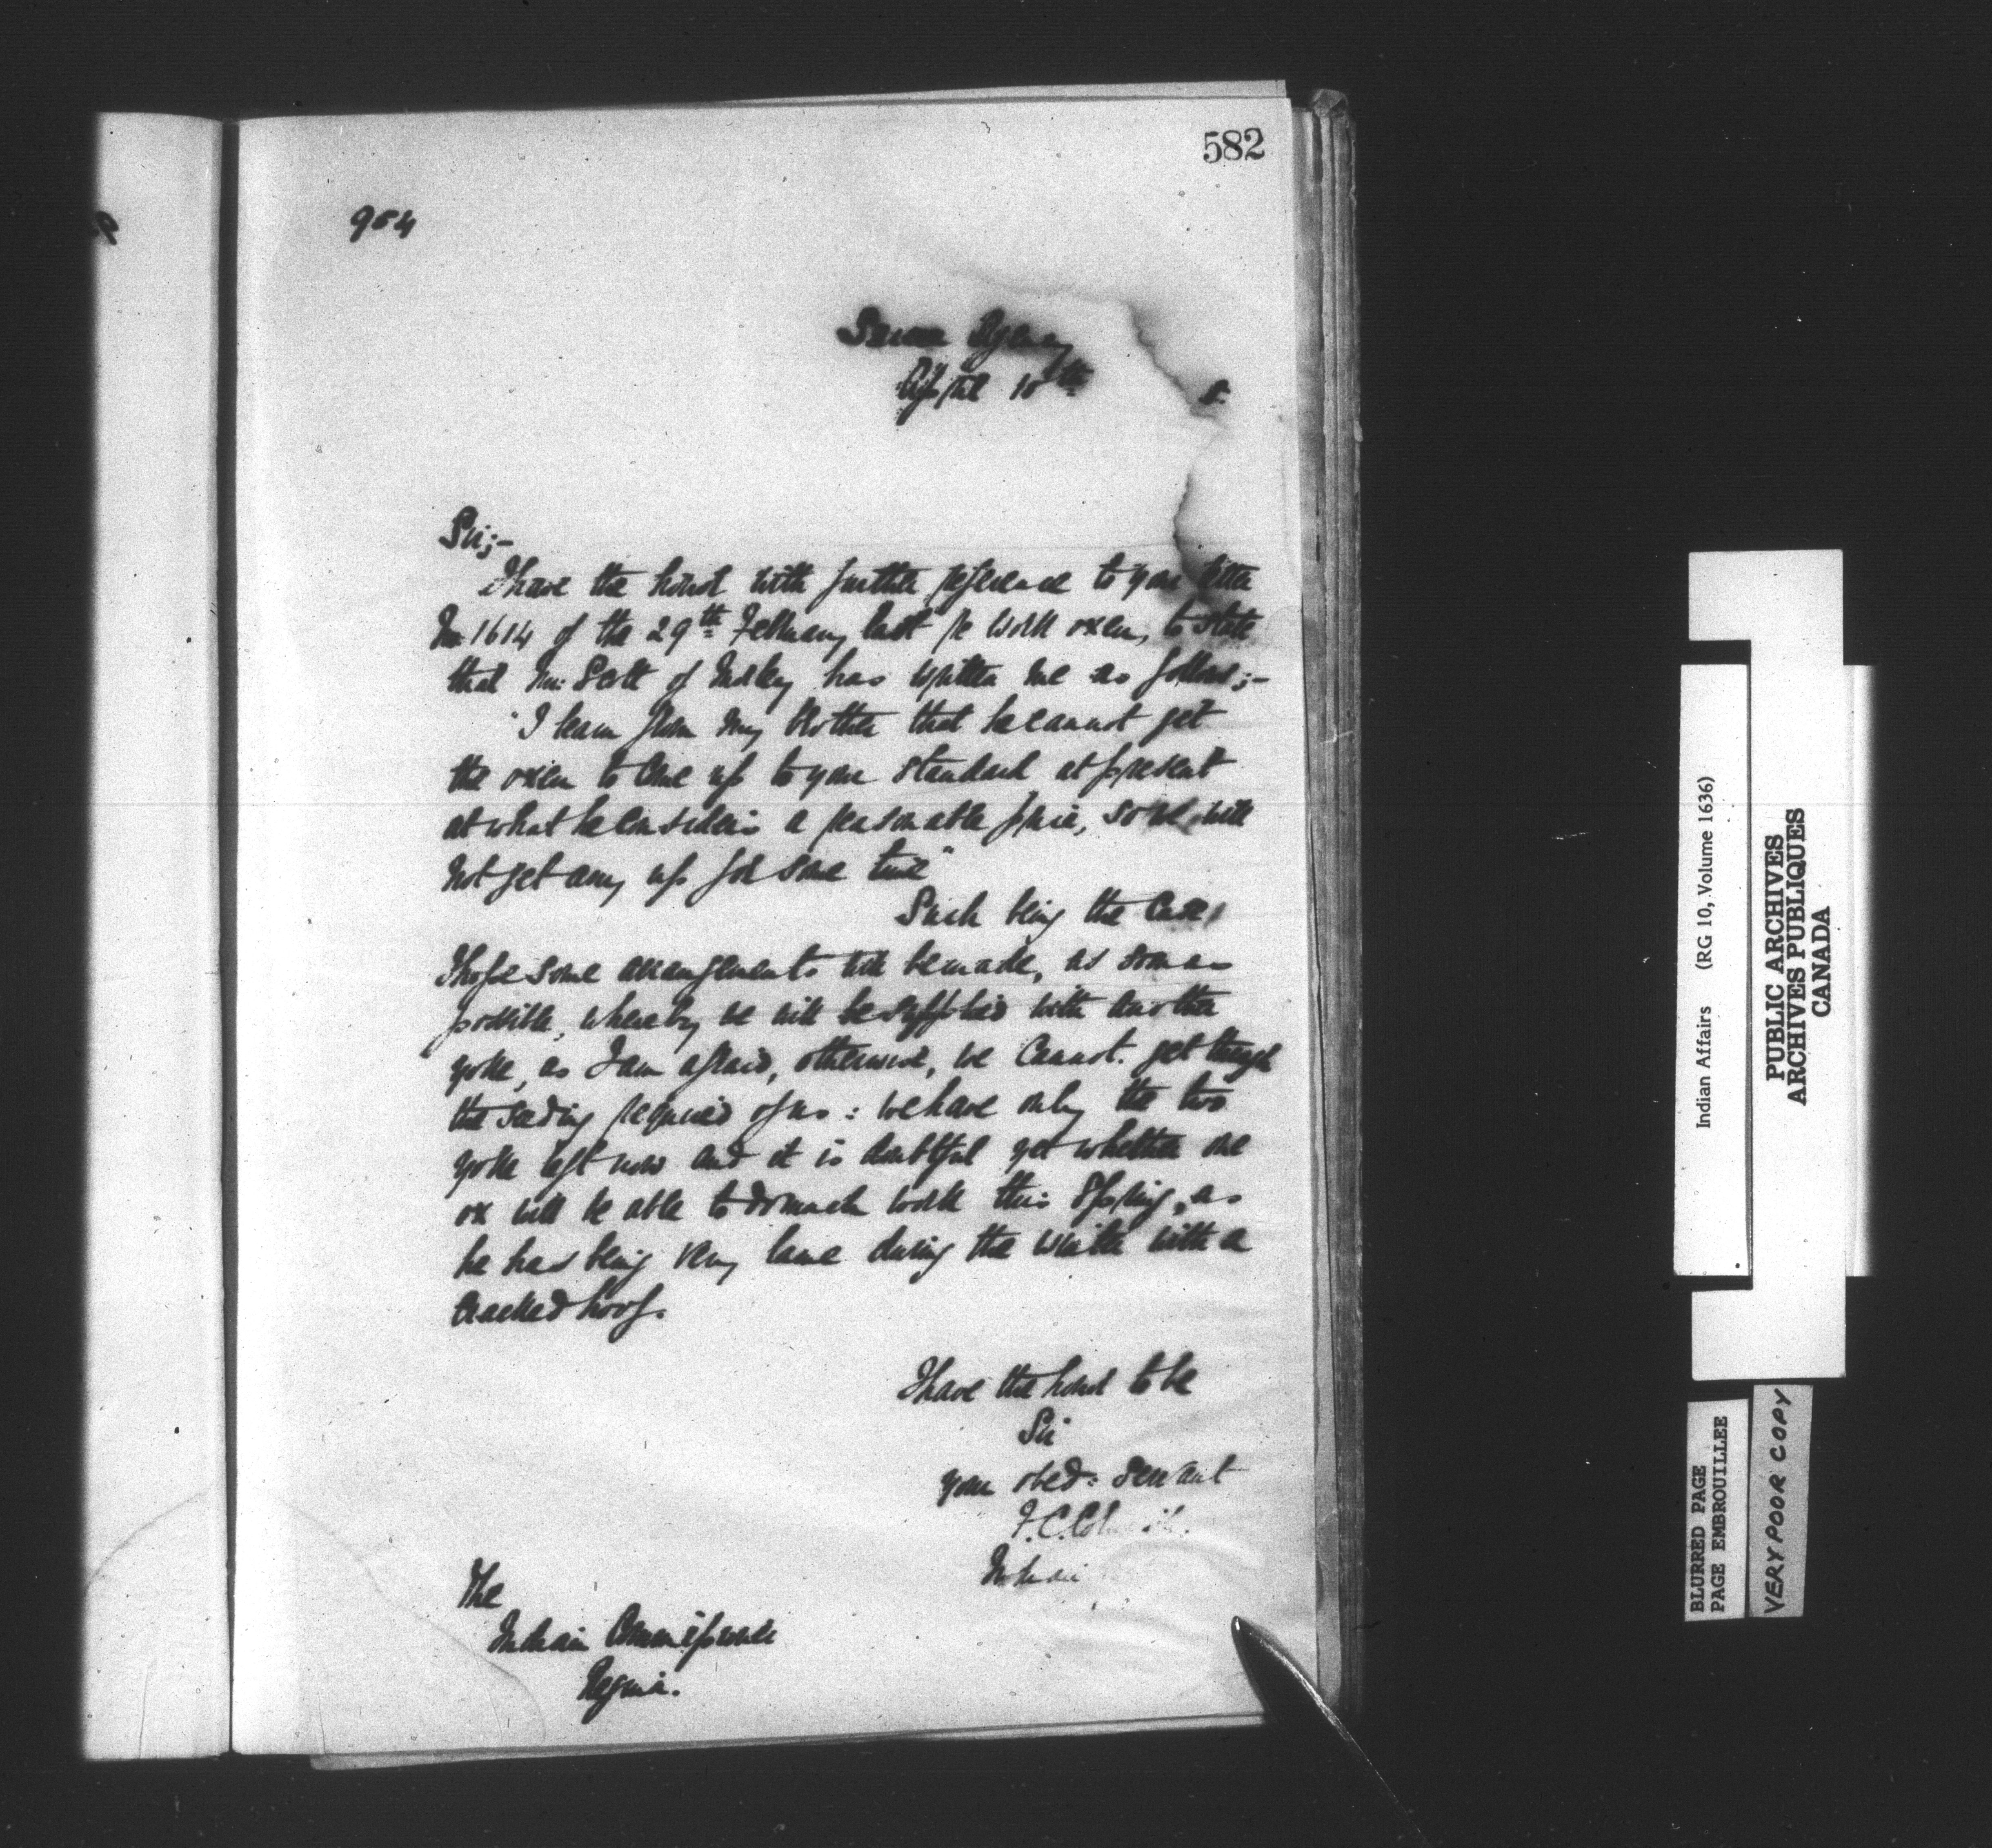 582
984
Sarcee Agency
April 10th
8.
Sir;-
I have the honor with further reference to your letter
No 1614 of the 29th February last re work oxen, to state
that Mr. Scott of has written me as follows;-
"I learn from my brother that he cannot get
the oxen to come up to your standard at present
at what he considers a reasonable price, so we will
not get any up for some time"
Such being the case,
I hope some arrangements will be made, as soon as
possible, whereby we will be supplied with another
yoke, as I am afraid, otherwise, we cannot get through
the seeding required of us: we have only the two
yoke left now and it is doubtful yet whether one
ox will be able to do much work this Spring, as
he has being very lame during the winter with a
cracked hoof.
I have the honor to be
Sir
your obed: servant
F.C.
Indian
The
Indian Commissioner
Regina.
Indian Affairs (RG 10, Volume 1636)
PUBLIC ARCHIVES
ARCHIVES PUBLIQUES
CANADA
BLURRED PAGE
PAGE EMBROUILLEE
VERY POOR COPY